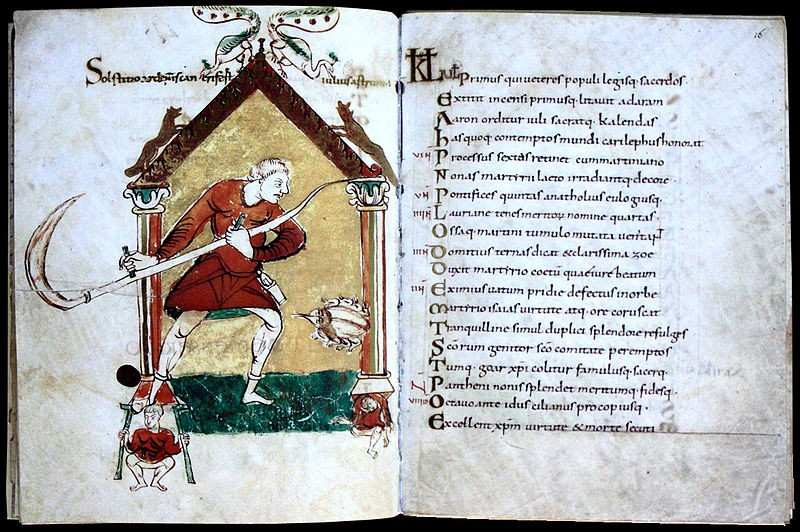 Solstitio ardentis cancri fert iulius astrum
16
KL iul Primus qui veteres populi legisq. sacerdos
Extitit incensi primusq. litavit ad aram
Aaron orditur iuli sacratq. kalendas
hasquoq. contemptos mundi carilephus honorat
Processus sextas retinet cum martiniano
Nonas marterii laeto irradiantq. decore
Pontifices quintas anatholius eulogiusq.
Lauriane tenes nomine quartas
Ossaq. martini tumulo mutata
Domitius ternas dicat & clarissima zoe
Duxit marterio coetu quae iure beatum
Eximius vatum pridie defectus in orbe
marterio isaias virtute atq. ore coruscat
Tranquilline simul duplici splendore refulges
Scorum genitor sco comitate peremptos
Tumq. goar xpi colitur famulusq. sacerq.
Pantheni nonis splendet meritumq. fidesq.
Octavo ante idus cilianus procopiusq.
Excellent xpm virtute & morte secuti